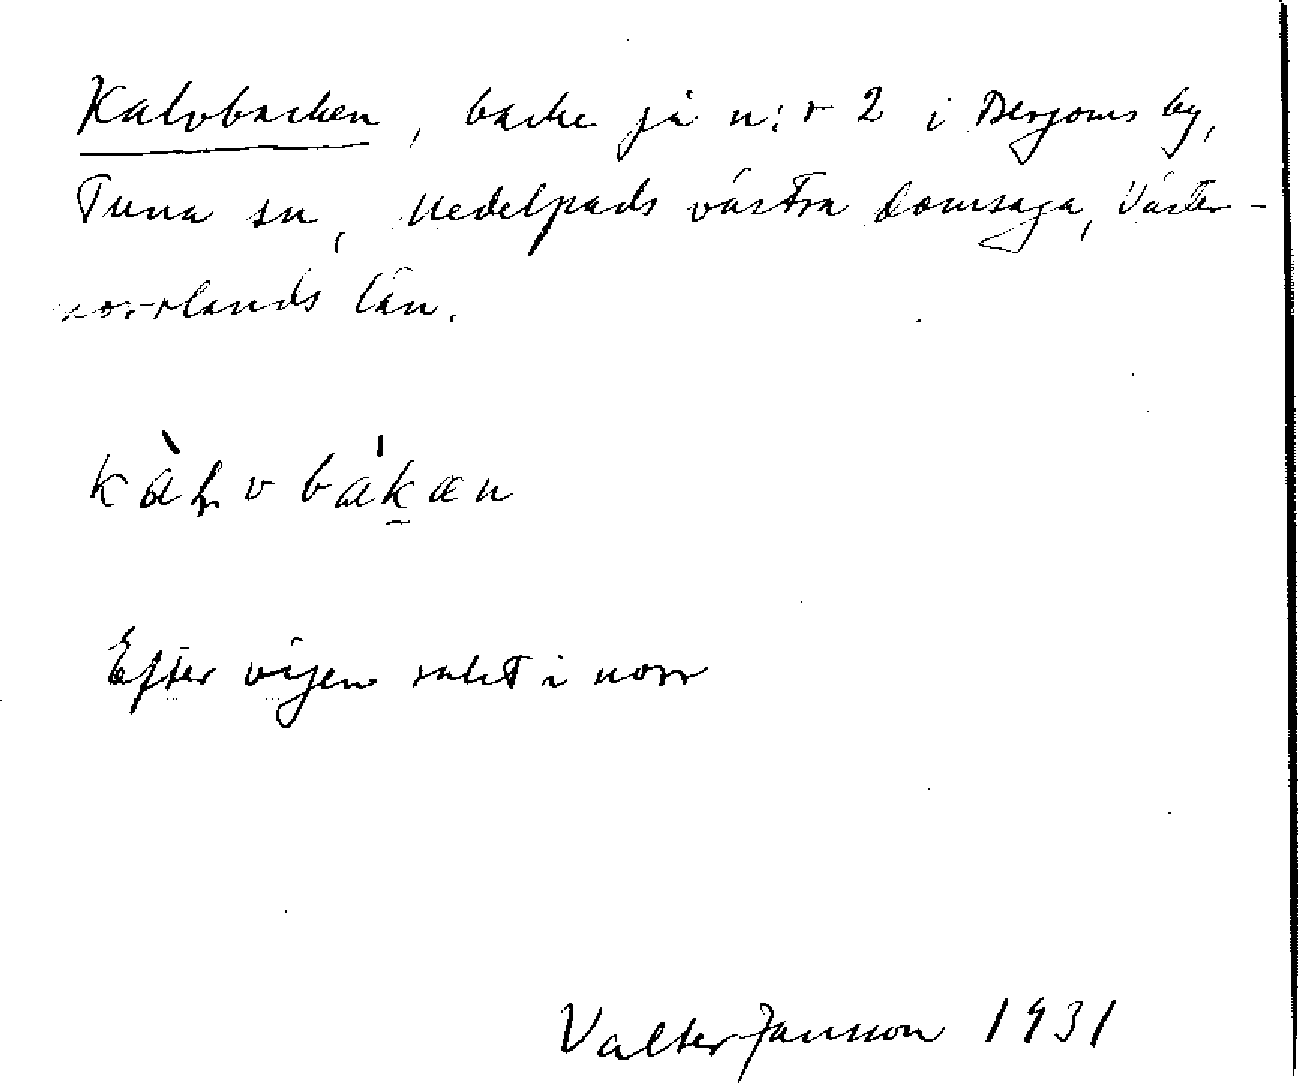 Kalvbacken, backe på n:r 2 i Bergoms by,
Tuna sn, Medelpads västra domsaga, Väster-
norrlands län.
kàḷvbákæn
Efter vägen rakt i norr
Valter Jansson 1931